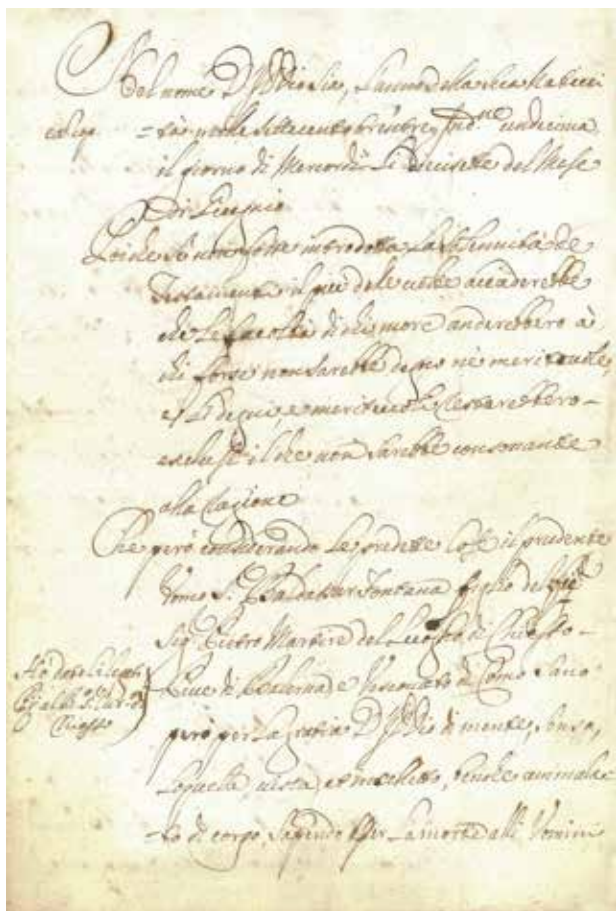 Nel nome D'Iddio sia, l'anno della sua Nativi
=tà mille settecento trentatre, Ind.ne undecima,
il giorno di Mercordì li diecisette del Mese
Di Giugnio
Poiche se non fosse introdotta la solennità de
Testamenti il più delle volte accaderebbe
che le facoltà di chi more anderebbero à
chi forsi non sarebbe degno nè meritevole,
e li degni, e meritevoli resterebbero
esclusi il che non sarebbe consonante
alla ragione
Che però considerando le predette cose il prudente
Uomo S. Baldassar Fontana figlio del
Sig. Pietro Martire del Luogho di Chiasso
Pieve di Balerna, e Vescovato di Como sano
però per la gratia D'Iddio di mente, senso,
loquella, vista, et intelletto, benche ammala
=to di corpo, sapendo esser la morte alli Uomini
Chiasso